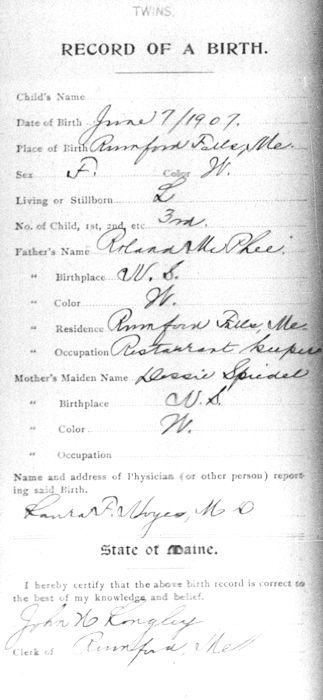 TWINS.
RECORD OF A BIRTH.
Child's Name
Date of Birth June 7/1907.
Place of Birth Rumford Falls, Me.
Sex F. Color W.
Living or Stillborn L
No. of Child, 1st, 2nd, etc 3rd.
Father's Name Roland McPhee.
" Birthplace U. S.
" Color W.
" Residence Rumford Falls, Me.
" Occupation Restaurant keeper
Mother's Maiden Name Dessie Spiedel
" Birthplace U. S.
" Color W.
" Occupation
Name and address of Physician (or other person) report-
ing said Birth.
Laura F. Noyes, M D
State of Maine.
I hereby certify that the above birth record is correct to
the best of my knowledge and belief.
John H Longley
Clerk of Rumford, Me